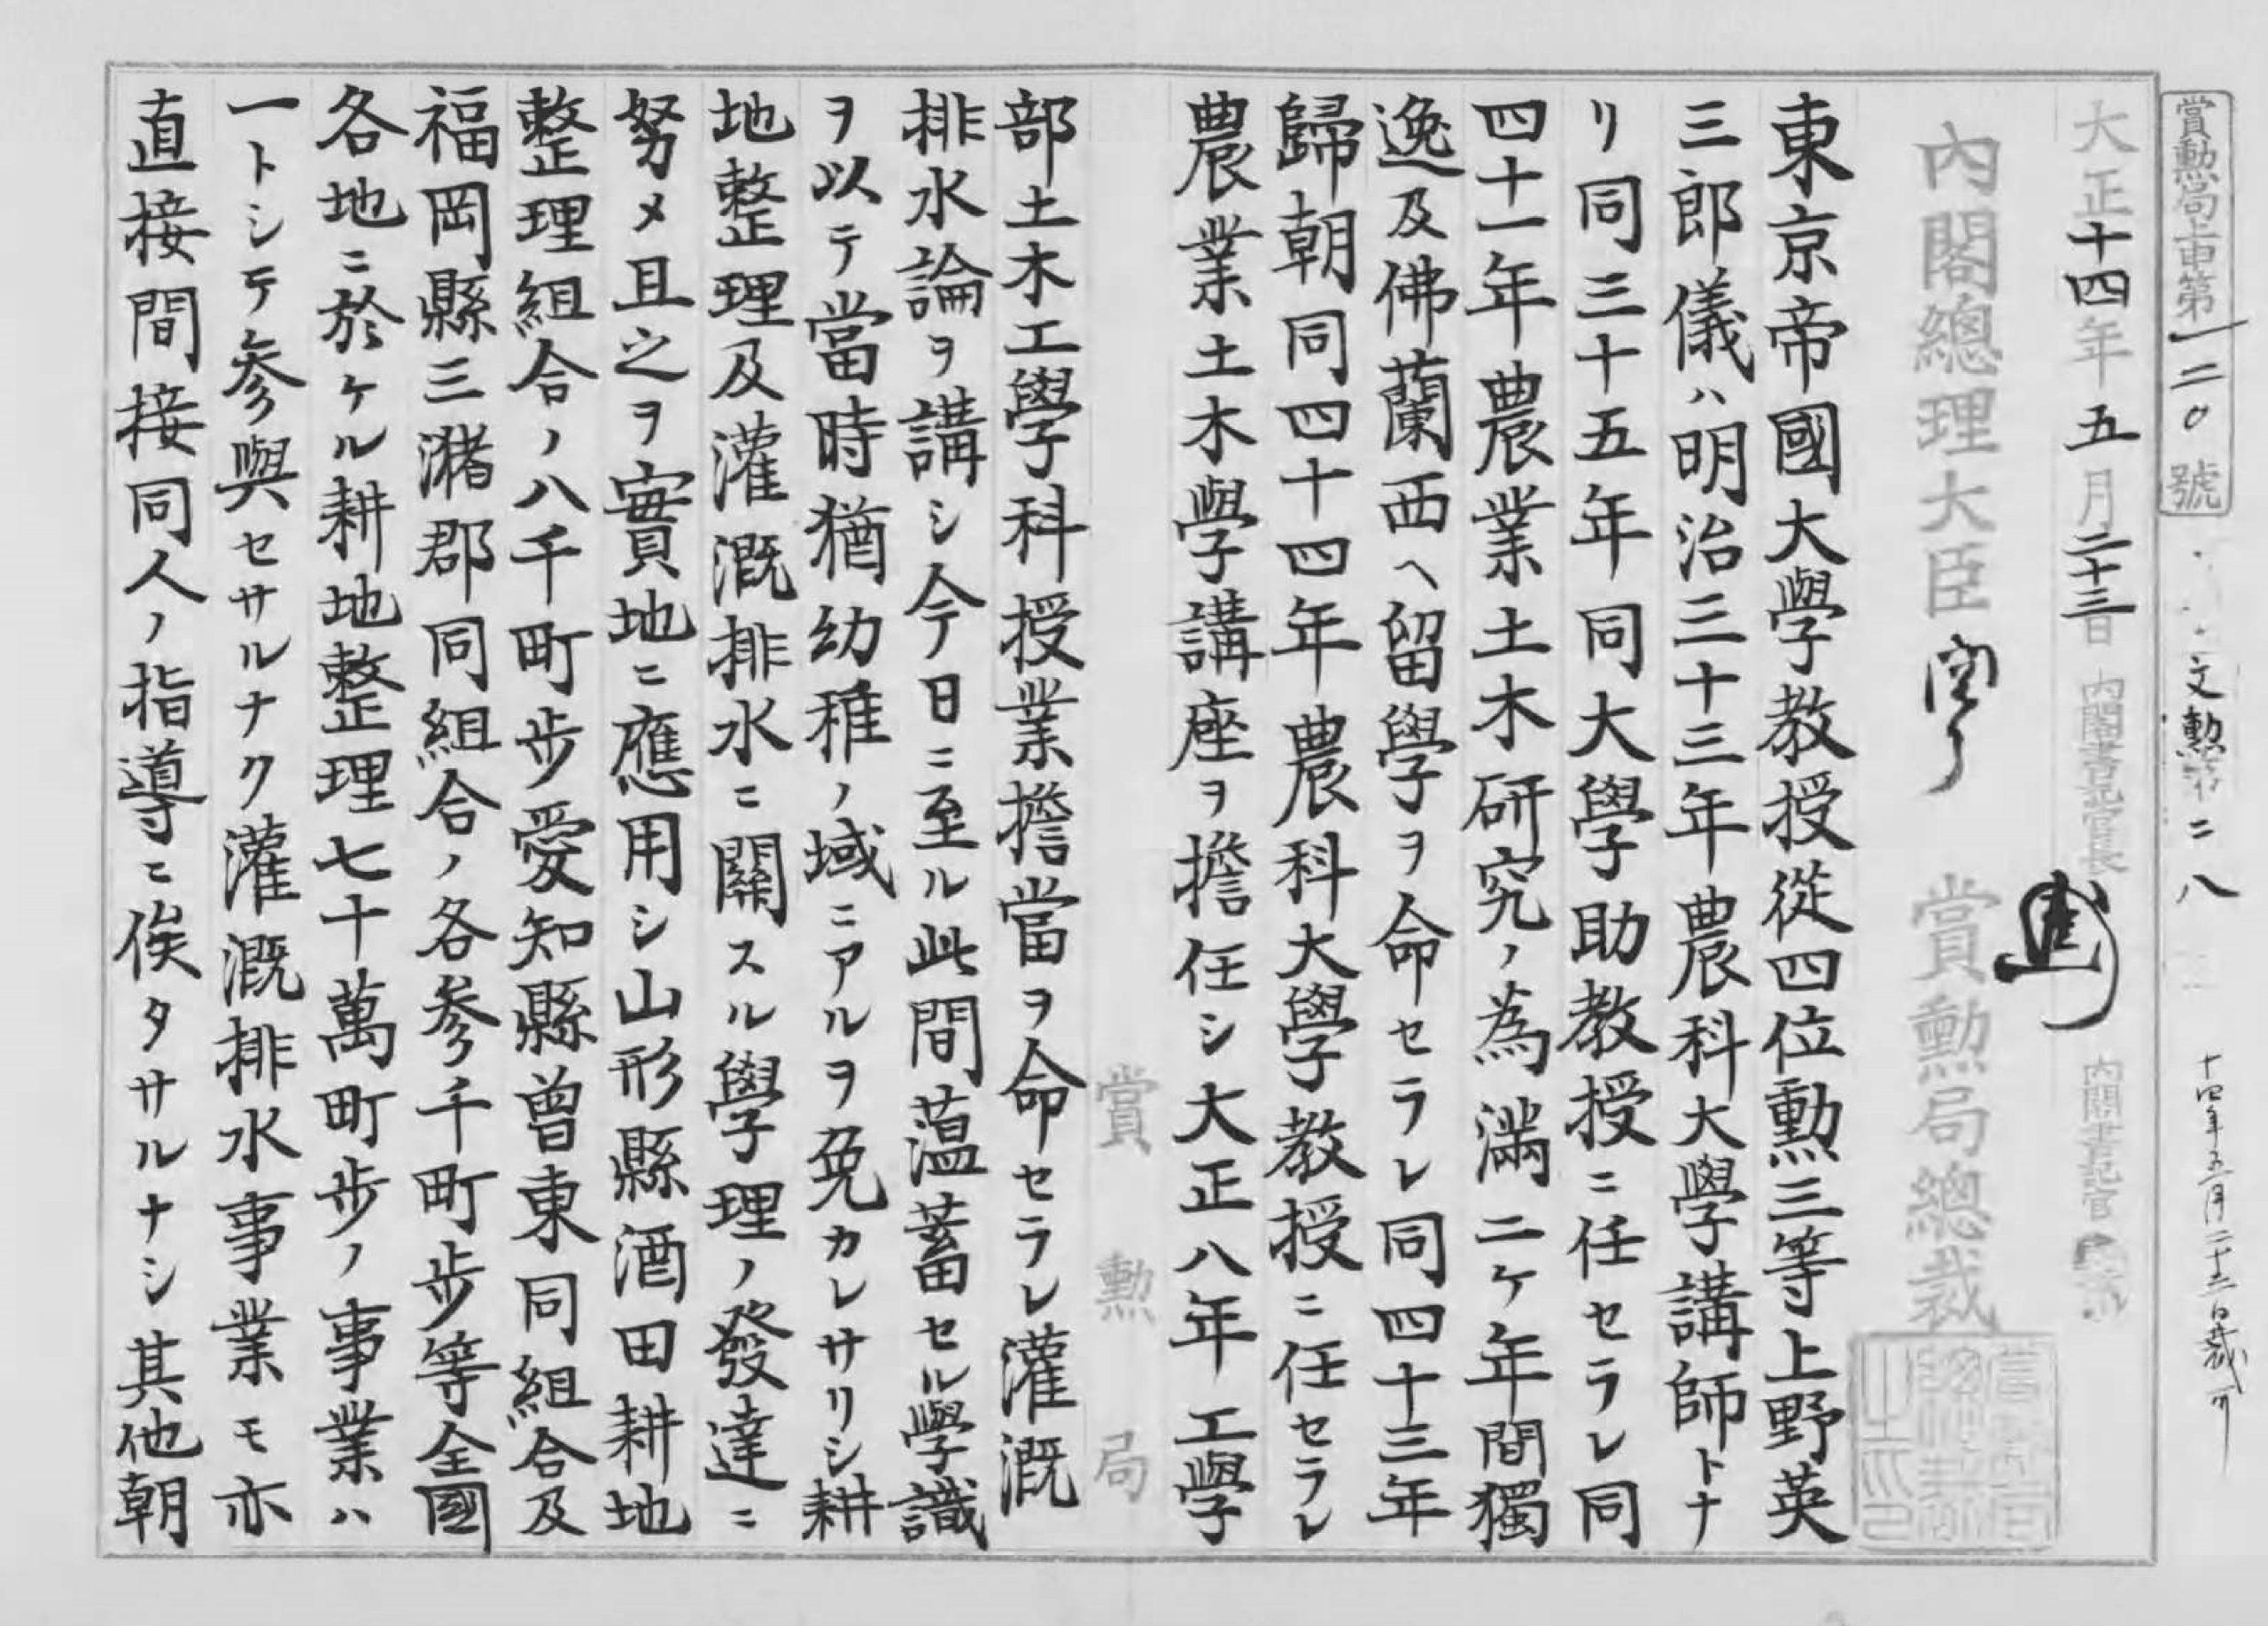 賞勲局上申第一二〇號
文勲第二八
十四年五月二十三日裁可
大正十四年五月二十三日 内閣書記官長 内閣書記官
内閣總理大臣 賞勲局總裁
東京帝國大學教授從四位勲三等上野英
三郎儀ハ明治三十三年農科大學講師トナ
リ同三十五年同大學助教授ニ任セラレ同
四十一年農業土木研究ノ為滿二ケ年間獨
逸及佛蘭西ヘ留學ヲ命セラレ同四十三年
歸朝同四十四年農科大學教授ニ任セラレ
農業土木學講座ヲ擔任シ大正八年工學
賞勲局
部土木工學科授業擔當ヲ命セラレ灌漑
排水論ヲ講シ今日ニ至ル此間薀蓄セル學識
ヲ以テ當時猶幼稚ノ域ニアルヲ免カレサリシ耕
地整理及灌漑排水ニ關スル學理ノ發達ニ
努メ且之ヲ實地ニ應用シ山形縣酒田耕地
整理組合ノ八千町歩愛知縣曾東同組合及
福岡縣三瀦郡同組合ノ各参千町歩等全國
各地ニ於ケル耕地整理七十萬町歩ノ事業ハ
一トシテ参與セサルナク灌漑排水事業モ亦
直接間接同人ノ指導ニ俟タサルナシ其他朝